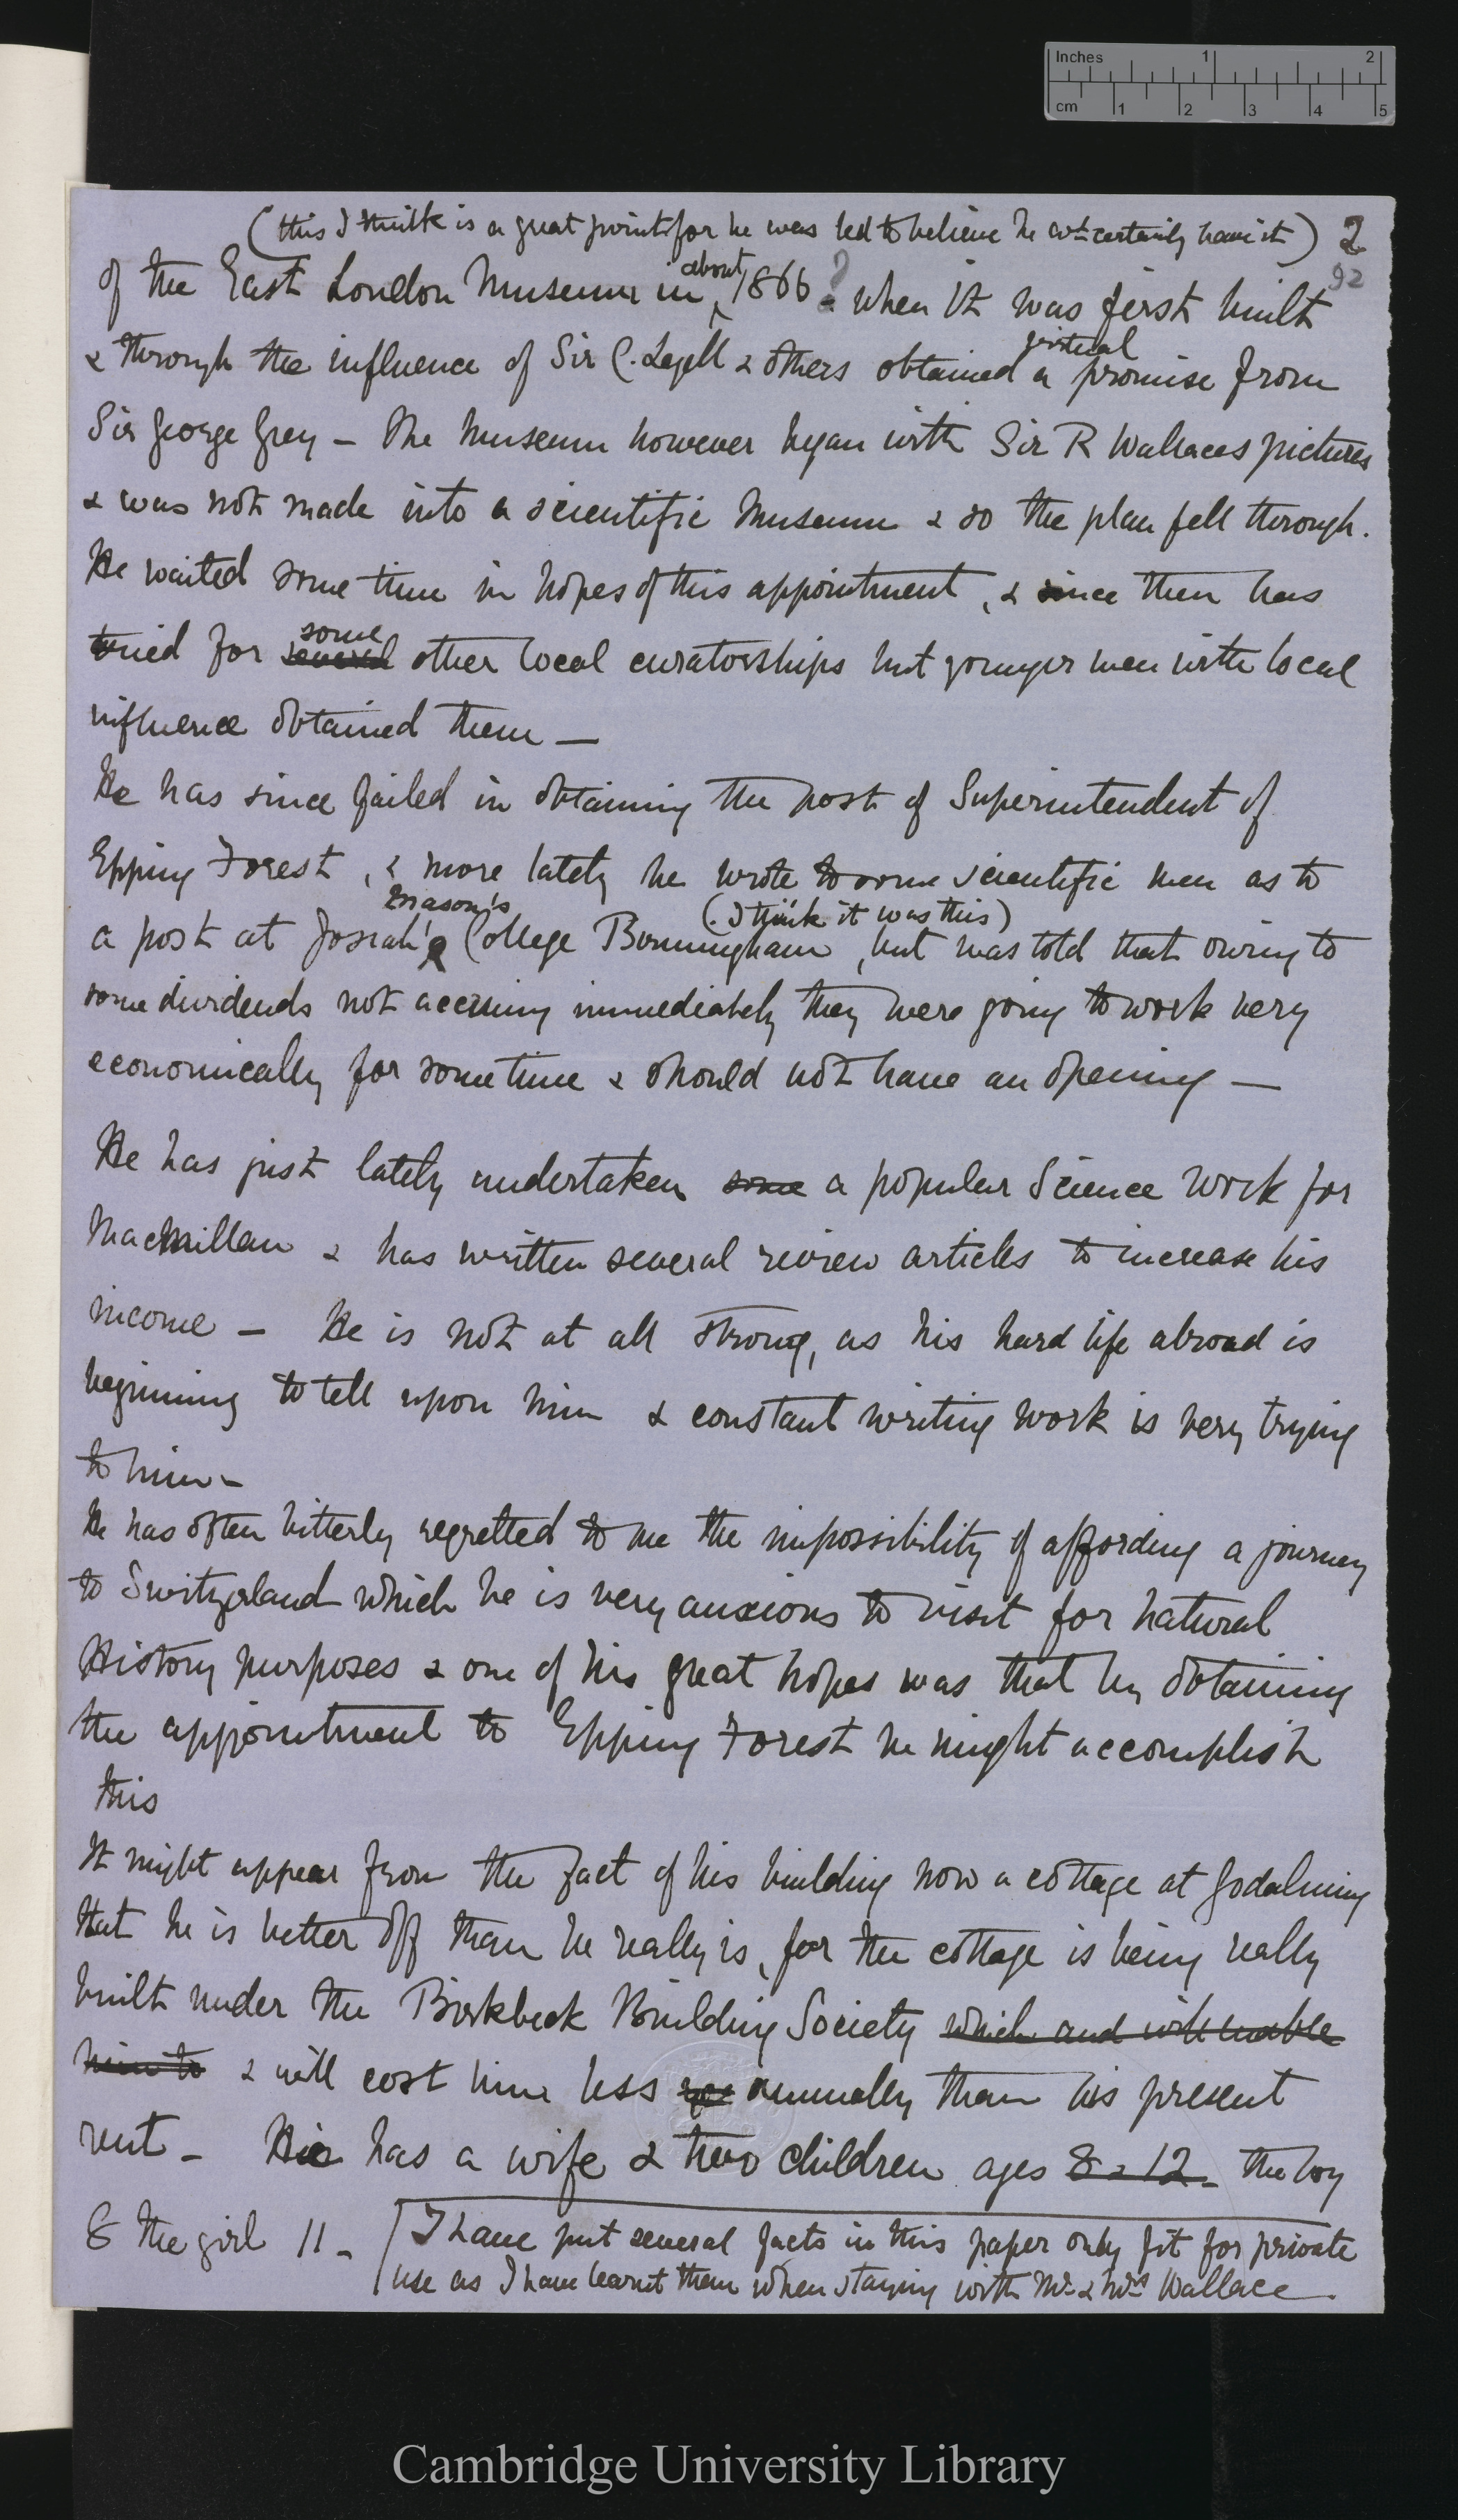 Inches 1 2
cm 1 2 3 4 5
(this I think is a great point for he was led to believe he wd. certainly have it) 2
92
of the East London Museum in about 1866? when it was first built
& through the influence of Sir C. Lyell & others obtained a virtual promise from
Sir George Grey – The Museum however began with Sir R Wallaces pictures
& was not made into a scientific Museum & so the plan fell through.
He waited some time in hopes of this appointment, & since then has
tried for several some other local curatorships but younger men with local
influence obtained them –
He has since failed in obtaining the post of Superintendent of
Epping Forest, & more lately he wrote to some scientific men as to
a post at Josiah Mason's College Birmingham (I think it was this), but was told that owing to
some dividends not accruing immediately they were going to work very
economically for some time & should not have an opening –
He has just lately undertaken some a popular Science work for
Macmillan & has written several review articles to increase his
income – He is not at all strong, as his hard life abroad is
beginning to tell upon him & constant writing work is very trying
to him –
He has often bitterly regretted to me the impossibility of affording a journey
to Switzerland which he is very anxious to visit for natural
History purposes & one of his great hopes was that by obtaining
the appointment to Epping Forest he might accomplish
this
It might appear from the fact of his building now a cottage at Godalming
that he is better off than he really is, for the cottage is being really
built under the Birkbeck Building Society which and will enable
him to & will cost him less annually than his present
rent – He has a wife & two children ages 8 & 12 – the boy
8 the girl 11 – I have put several facts in this paper only fit for private
use as I have learnt them when staying with Mr. & Mrs Wallace.
Cambridge University Library